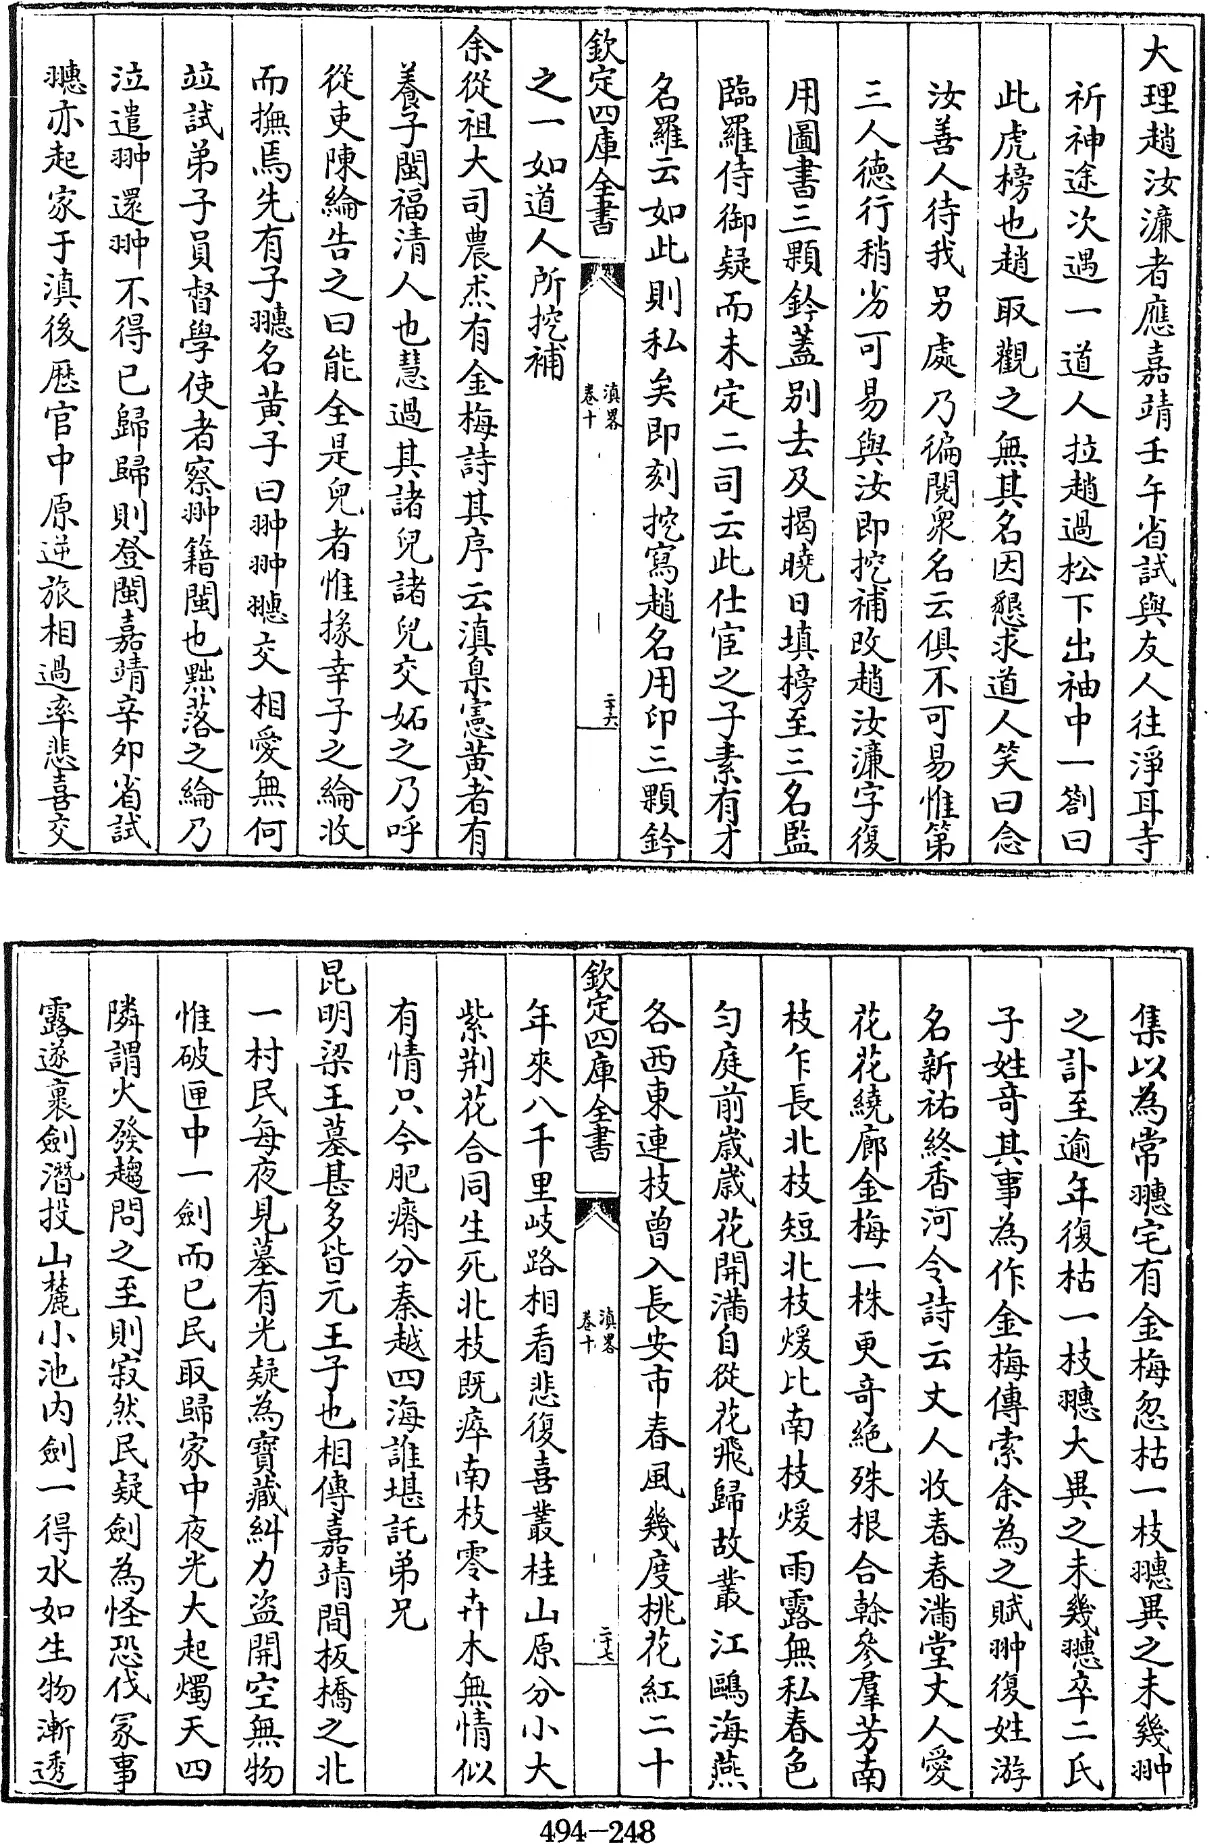 大理趙汝濂者應嘉靖壬午省試與友人往淨耳寺
祈神途次遇一道人拉趙過松下出袖中一劄曰
此虎榜也趙取觀之無其名因懇求道人笑曰念
汝善人待我另處乃徧閱衆名云俱不可易惟第
三人德行稍劣可易與汝即挖補改趙汝濂字復
用圖書三顆鈐蓋別去及揭曉日填榜至三名監
臨羅侍御疑而未定二司云此仕宦之子素有才
名羅云如此則私矣即刻挖寫趙名用印三顆鈐
欽定四庫全書
滇畧
卷十
二十六
之一如道人所挖補
余從祖大司農杰有金梅詩其序云滇臬憲黄者有
養子閩福清人也慧過其諸兒諸兒交妬之乃呼
從吏陳綸告之曰能全是兒者惟掾幸子之綸收
而撫焉先有子翀名黄子曰翀翀翀交相愛無何
並試弟子員督學使者察翀籍閩也黜落之綸乃
泣遣翀還翀不得已歸歸則登閩嘉靖辛夘省試
亦起家于滇後歷官中原逆旅相過率悲喜交
集以為常宅有金梅忽枯一枝異之未幾翀
之訃至逾年復枯一枝大異之未幾卒二氏
子姓竒其事為作金梅傳索余為之賦翀復姓游
名新祐終香河令詩云丈人收春春滿堂丈人愛
花花繞廊金梅一株更竒絶殊根合榦參羣芳南
枝乍長北枝短北枝煖比南枝煖雨露無私春色
勻庭前歲歲花開滿自從花飛歸故叢江鷗海燕
各西東連枝曾入長安市春風幾度桃花紅二十
欽定四庫全書
滇畧
卷十
二十七
年來八千里岐路相看悲復喜叢桂山原分小大
紫荆花合同生死北枝既瘁南枝零卉木無情似
有情只今肥瘠分秦越四海誰堪託弟兄
昆明梁王墓甚多皆元王子也相傳嘉靖間板橋之北
一村民每夜見墓有光疑為寶藏糾力盜開空無物
惟破匣中一劍而已民取歸家中夜光大起燭天四
隣謂火發趨問之至則寂然民疑劍為怪恐伐冢事
露遂裹劍潛投山麓小池内劍一得水如生物漸透
494-248